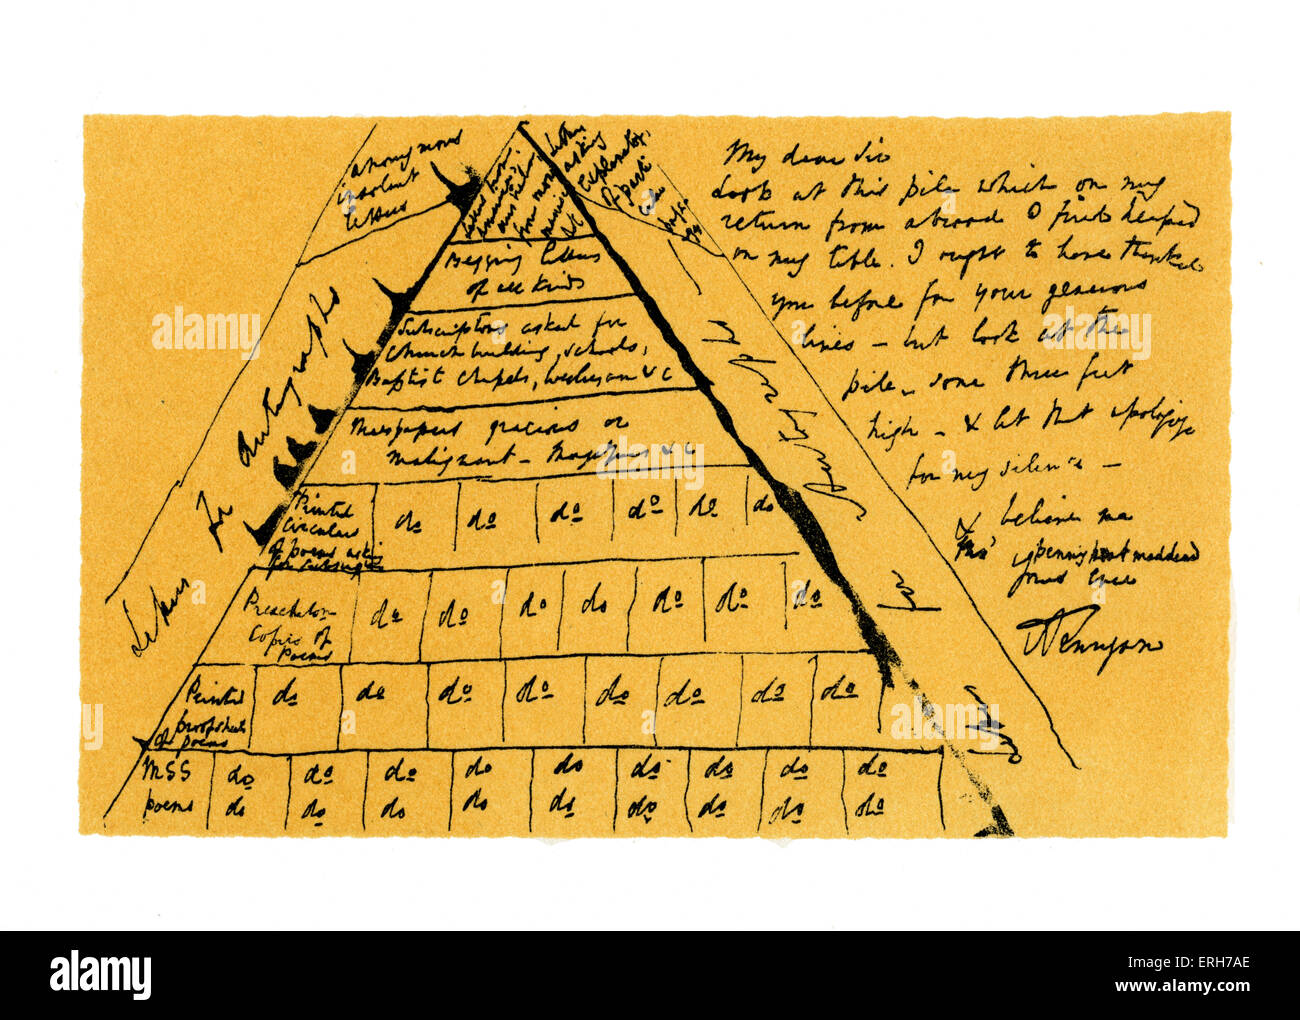 anonymous
insolent
letters
Letters from
Letters
asking
explanation
of parti
cular
Begging letters
of all kinds
Subscriptions asked for
Church building, schools,
Baptist Chapels, Wesleyan & C
Newspapers gracious or
malignant – Magazines & C
Printed
Circular
of poems asking
for subscription
do do do do do do
Presentation
Copies of
Poems
do do do do do do do
Printed
proofsheets
of poems
do do do do do do do do
MSS do do do do do do do do do
poems do do do do do do do do do
Letters for autographs
Letters for autographs
My dear Sir
Look at this pile which on my
return from abroad I find heaped
on my table. I ought to have thanked
you before for your generous
lines – but look at the
pile, some three feet
high – & let that apologize
for my silence –
& believe me
tho' pennypost maddened
Yours ever
A Tennyson
alamy
a
alamy stock photo
ERH7AE
www.alamy.com